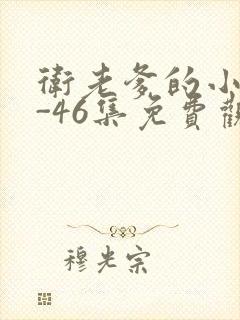 衛老爹的小
-46集免費觀
穆光宗